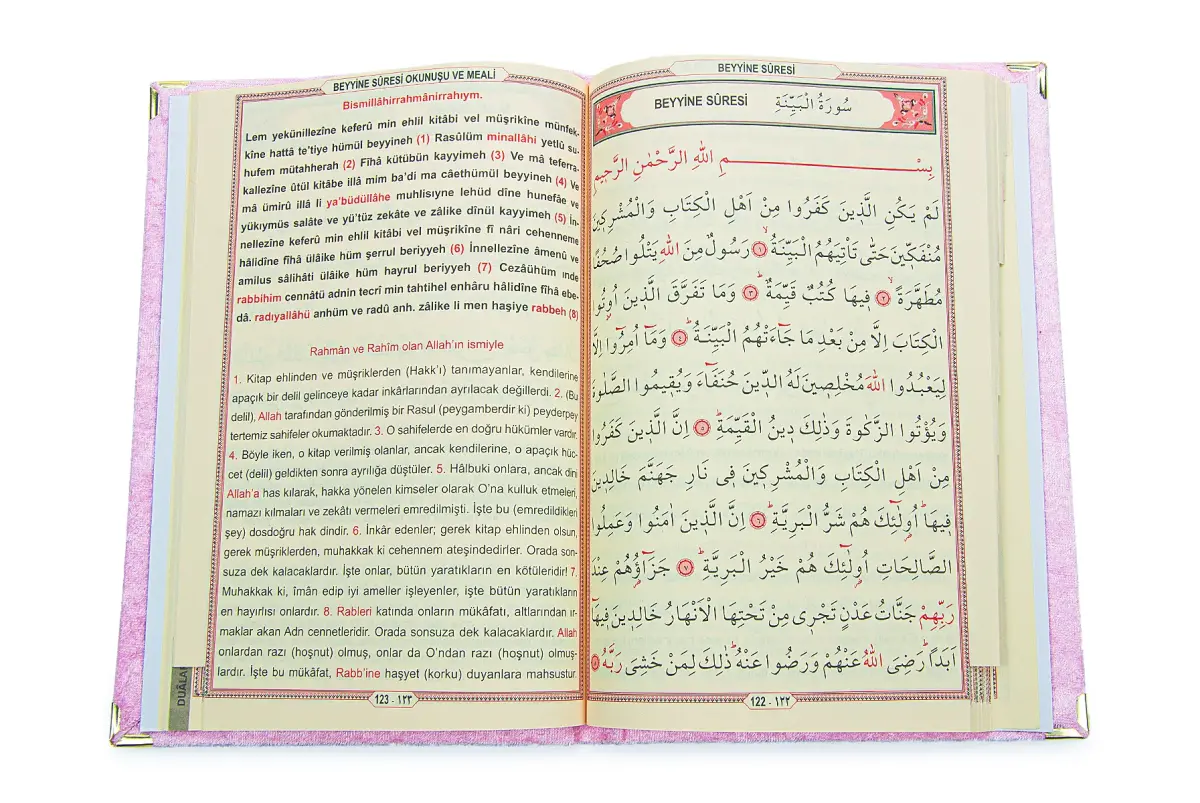 BEYYİNE SÛRESİ OKUNUŞU VE MEALİ
Bismillâhirrahmânirrahıym.
Lem yekünillezîne keferû min ehlil kitâbi vel müşrikîne münfek-
kîne hattâ te'tiye hümül beyyineh (1) Rasûlüm minallâhi yetlû su-
hufem mütahherah (2) Fîhâ kütübün kayyimeh (3) Ve mâ teferra-
kallezîne ûtül kitâbe illâ mim ba'di ma câethümül beyyineh (4) Ve
mâ ümirû illâ li ya'büdüllâhe muhlisıyne lehüd dîne hunefâe ve
yükıymüs salâte ve yü'tüz zekâte ve zâlike dînül kayyimeh (5) İn-
nellezîne keferû min ehlil kitâbi vel müşrikîne fî nâri cehenneme
hâlidîne fîhâ ülâike hüm şerrul beriyyeh (6) İnnellezîne âmenû ve
amilus sâlihâti ülâike hüm hayrul beriyyeh (7) Cezâühüm ınde
rabbihim cennâtü adnin tecrî min tahtihel enhâru hâlidîne fîhâ ebe-
dâ. radıyallâhü anhüm ve radû anh. zâlike li men haşiye rabbeh (8)
Rahmân ve Rahîm olan Allah'ın ismiyle
1. Kitap ehlinden ve müşriklerden (Hakk'ı) tanımayanlar, kendilerine
apaçık bir delil gelinceye kadar inkârlarından ayrılacak değillerdi. 2. (Bu
delil), Allah tarafından gönderilmiş bir Rasul (peygamberdir ki) peyderpey
tertemiz sahifeler okumaktadır. 3. O sahifelerde en doğru hükümler vardır.
4. Böyle iken, o kitap verilmiş olanlar, ancak kendilerine, o apaçık hüc-
cet (delil) geldikten sonra ayrılığa düştüler. 5. Hâlbuki onlara, ancak dini
Allah'a has kılarak, hakka yönelen kimseler olarak O'na kulluk etmeleri,
namazı kılmaları ve zekâtı vermeleri emredilmişti. İşte bu (emredildikleri
şey) dosdoğru hak dindir. 6. İnkâr edenler; gerek kitap ehlinden olsun,
gerek müşriklerden, muhakkak ki cehennem ateşindedirler. Orada son-
suza dek kalacaklardır. İşte onlar, bütün yaratıkların en kötüleridir! 7.
Muhakkak ki, îmân edip iyi ameller işleyenler, işte bütün yaratıkların
en hayırlısı onlardır. 8. Rableri katında onların mükâfatı, altlarından ır-
maklar akan Adn cennetleridir. Orada sonsuza dek kalacaklardır. Allah
onlardan razı (hoşnut) olmuş, onlar da O'ndan razı (hoşnut) olmuş-
lardır. İşte bu mükâfat, Rabb'ine haşyet (korku) duyanlara mahsustur.
123 - ١٢٣
BEYYİNE SÛRESİ
BEYYİNE SÛRESİ سُورَةُ الْبَيِّنَةِ
بِسْمِ اللهِ الرَّحْمٰنِ الرَّحِيمِ
لَمْ يَكُنِ الَّذِينَ كَفَرُوا مِنْ اَهْلِ الْكِتَابِ وَالْمُشْرِكِينَ
مُنْفَكِّينَ حَتّٰى تَأْتِيَهُمُ الْبَيِّنَةُ ۙ ﴿١﴾ رَسُولٌ مِنَ اللهِ يَتْلُوا صُحُفًا
مُطَهَّرَةً ۙ ﴿٢﴾ فِيهَا كُتُبٌ قَيِّمَةٌ ۜ ﴿٣﴾ وَمَا تَفَرَّقَ الَّذِينَ اُوتُوا
الْكِتَابَ اِلَّا مِنْ بَعْدِ مَا جَٓاءَتْهُمُ الْبَيِّنَةُ ۜ ﴿٤﴾ وَمَٓا اُمِرُٓوا اِلَّا
لِيَعْبُدُوا اللهَ مُخْلِصِينَ لَهُ الدِّينَ حُنَفَٓاءَ وَيُقِيمُوا الصَّلٰوةَ
وَيُؤْتُوا الزَّكٰوةَ وَذٰلِكَ دِينُ الْقَيِّمَةِ ۜ ﴿٥﴾ اِنَّ الَّذِينَ كَفَرُوا
مِنْ اَهْلِ الْكِتَابِ وَالْمُشْرِكِينَ فِي نَارِ جَهَنَّمَ خَالِدِينَ
فِيهَا ۜ اُو۬لٰٓئِكَ هُمْ شَرُّ الْبَرِيَّةِ ۜ ﴿٦﴾ اِنَّ الَّذِينَ اٰمَنُوا وَعَمِلُوا
الصَّالِحَاتِ اُو۬لٰٓئِكَ هُمْ خَيْرُ الْبَرِيَّةِ ۜ ﴿٧﴾ جَزَٓاؤُ۬هُمْ عِنْدَ
رَبِّهِمْ جَنَّاتُ عَدْنٍ تَجْرِي مِنْ تَحْتِهَا الْاَنْهَارُ خَالِدِينَ فِيهَٓا
اَبَدًا ۜ رَضِيَ اللهُ عَنْهُمْ وَرَضُوا عَنْهُ ۜ ذٰلِكَ لِمَنْ خَشِيَ رَبَّهُ ﴿٨﴾
122 - ١٢٢